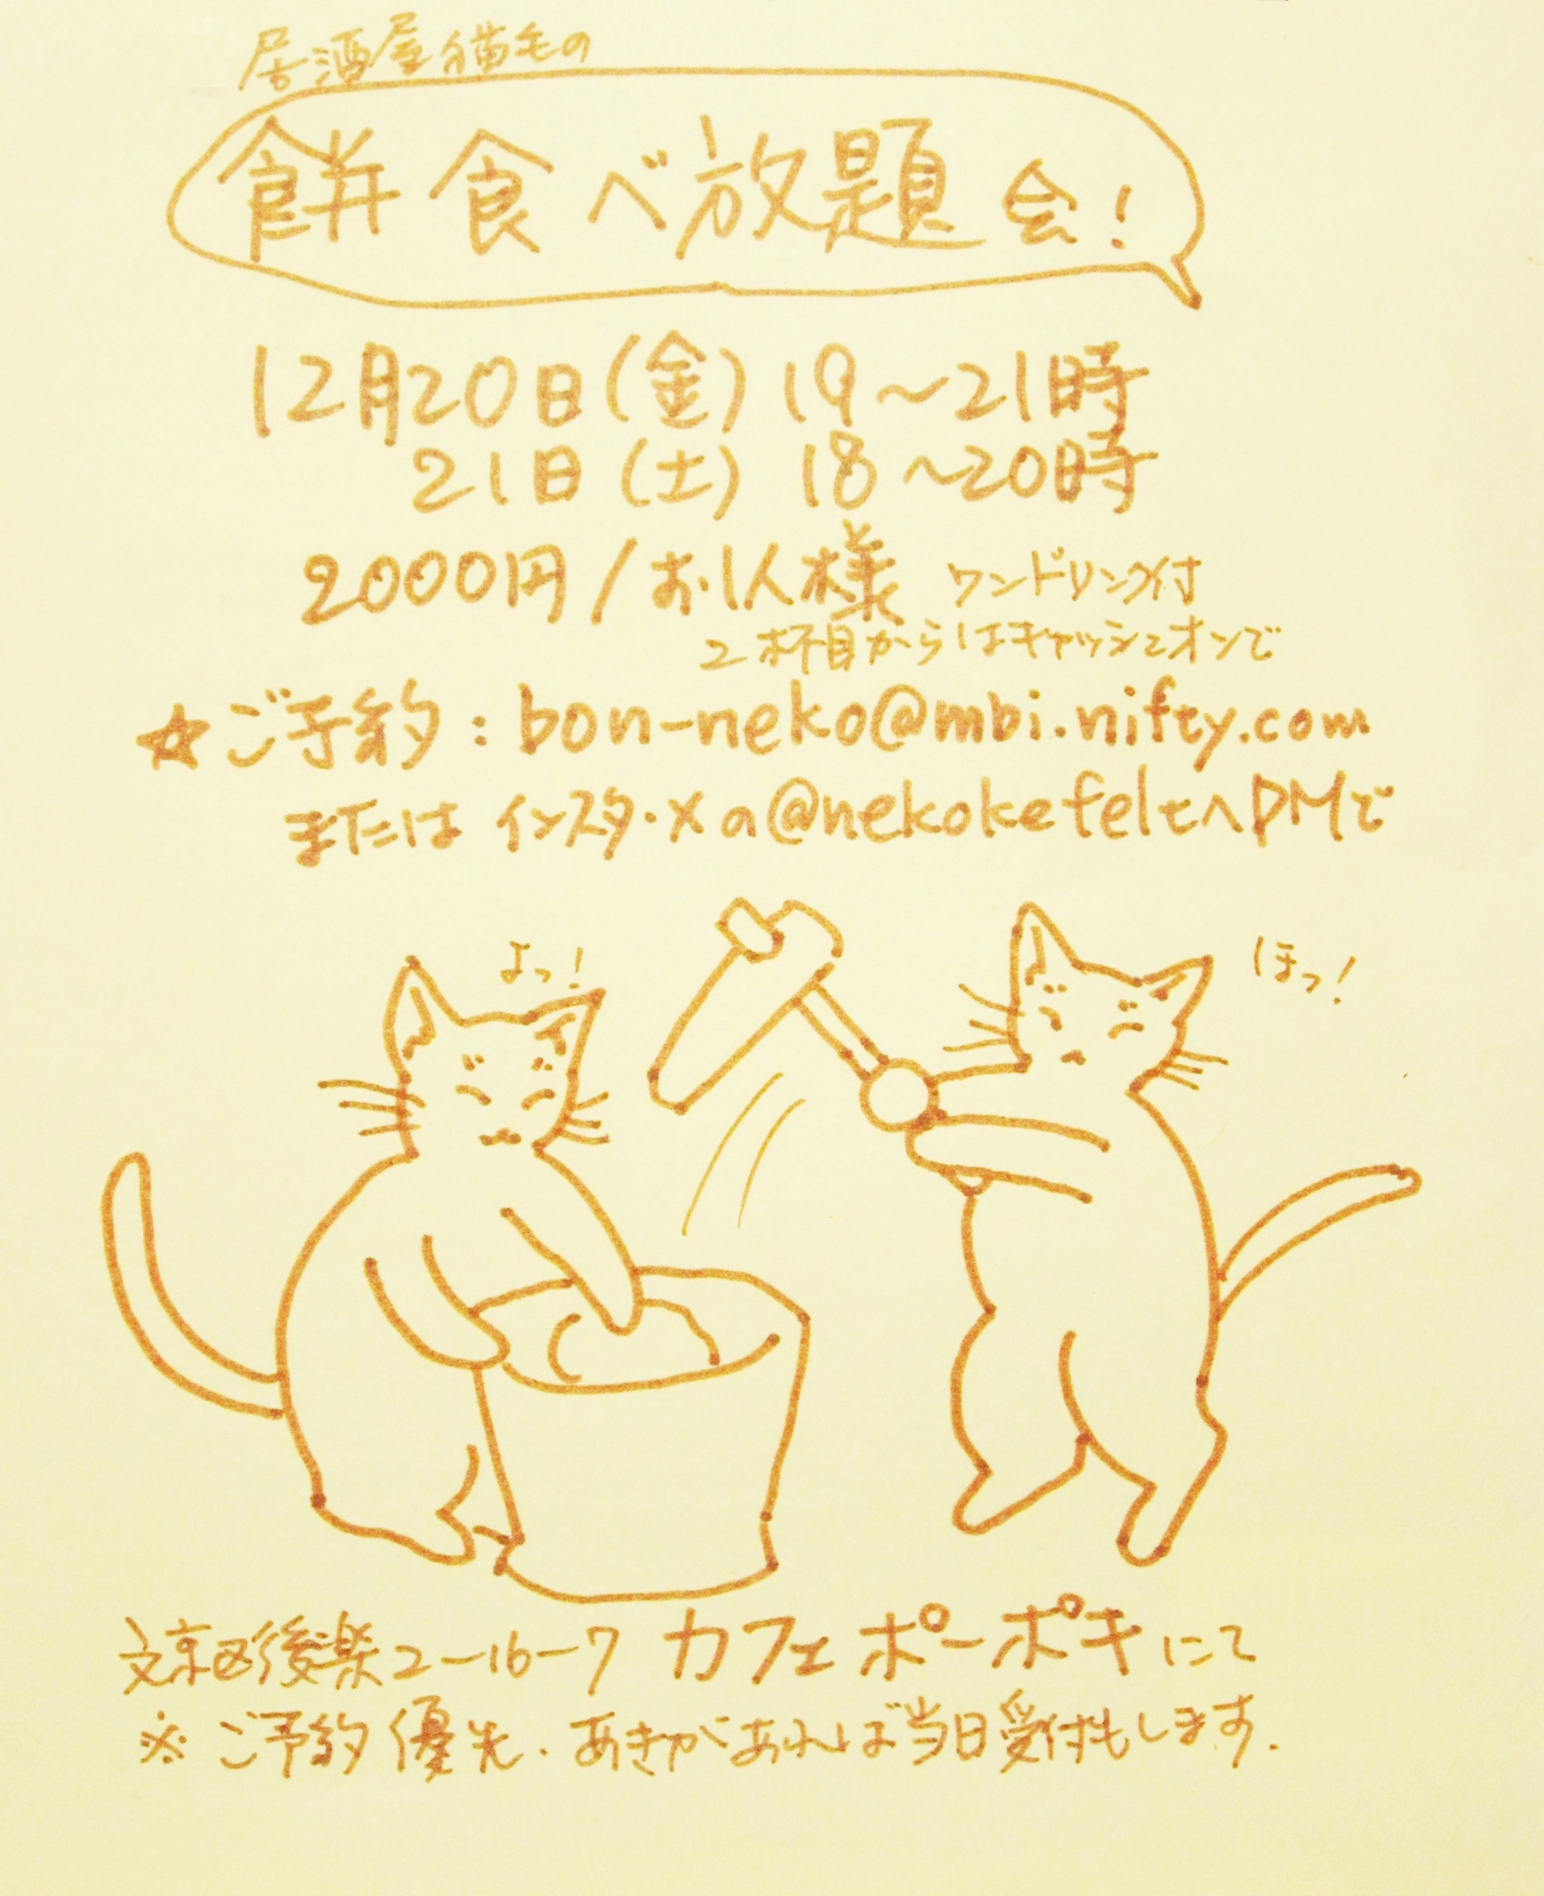 居酒屋猫毛の
餅食べ放題会!
12月20日(金) 19〜21時
21日(土) 18〜20時
2000円/お1人様 ワンドリンク付
2杯目からはキャッシュオンで
☆ご予約:bon-neko@mbi.nifty.com
または インスタ・Xa@nekokefeltへDMで
よっ!
ほっ!
文京区後楽2-16-7 カフェ ポーポキ にて
※ご予約優先.あきがあれば当日受付もします.